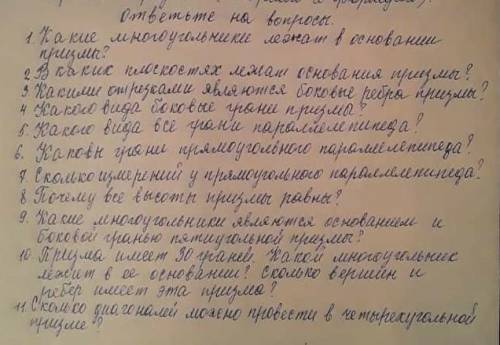 Ответьте на вопросы.
1. Какие многоугольники лежат в основании
призмы?
2. В каких плоскостях лежат основания призмы?
3 Какими отрезками являются боковые ребра призмы?
4 Какого вида боковые грани призма?
5. Какого вида все грани параллелепипеда?
6. Каковы грани прямоугольного параллелепипеда?
7 Сколько измерений у прямоугольного параллелепипеда?
8. Почему все высоты призмы равны?
9. Какие многоугольники являются основанием и
боковой гранью пятиугольной призмы?
10. Призма имеет 30 граней. Какой многоугольник
лежит в ее основании? Сколько вершин и
ребер имеет эта призма?
11. Сколько диагоналей можно провести в четырехугольной
призме?